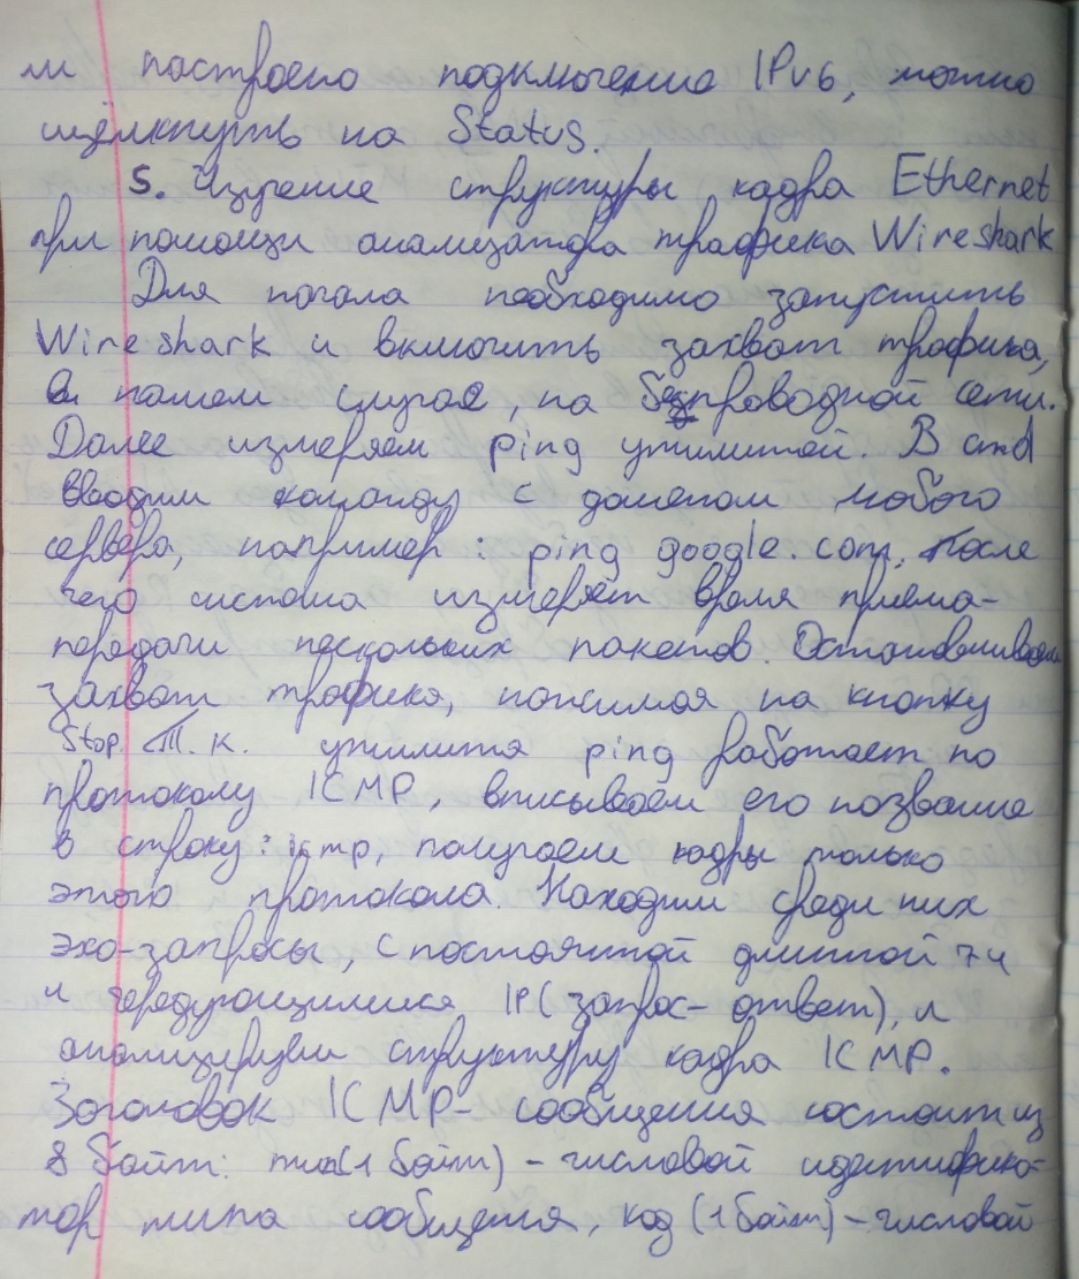 ли настроено подключение IPv6, можно
щёлкнуть на Status.
5. Изучение структуры кадра Ethernet
при помощи анализатора трафика Wireshark
Для начала необходимо запустить
Wireshark и включить захват трафика,
в нашем случае, на безпроводной сети.
Далее измеряем ping утилитой. В cmd
вводим команду с доменом любого
сервера, например: ping google.com. После
чего система измеряет время приема-
передачи нескольких пакетов. Останавливаем
захват трафика, нажимая на кнопку
Stop. Т.к. утилита ping работает по
протоколу ICMP, вписываем его название
в строку: icmp, получаем кадры только
этого протокола. Находим среди них
эхо-запросы, с постоянной длинной 74
и чередующимися IP (запрос-ответ), и
анализируем структуру кадра ICMP.
Заголовок ICMP-сообщения состоит из
8 байт: тип (1 байт) - числовой идентифика-
тор типа сообщения, код (1 байт) - числовой